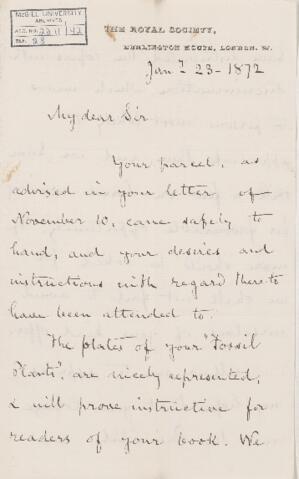 McGILL UNIVERSITY
ARCHIVES
ACC. NO. 2211/42
REF. 23
THE ROYAL SOCIETY,
BURLINGTON HOUSE, LONDON. W.
Jany. 23 - 1872
My dear Sir
Your parcel, as
advised in your letter of
November 10, came safely to
hand, and your desires and
instructions with regard thereto
have been attended to.
The plates of your "Fossil
Plants", are nicely represented,
& will prove instructive for
readers of your book. We